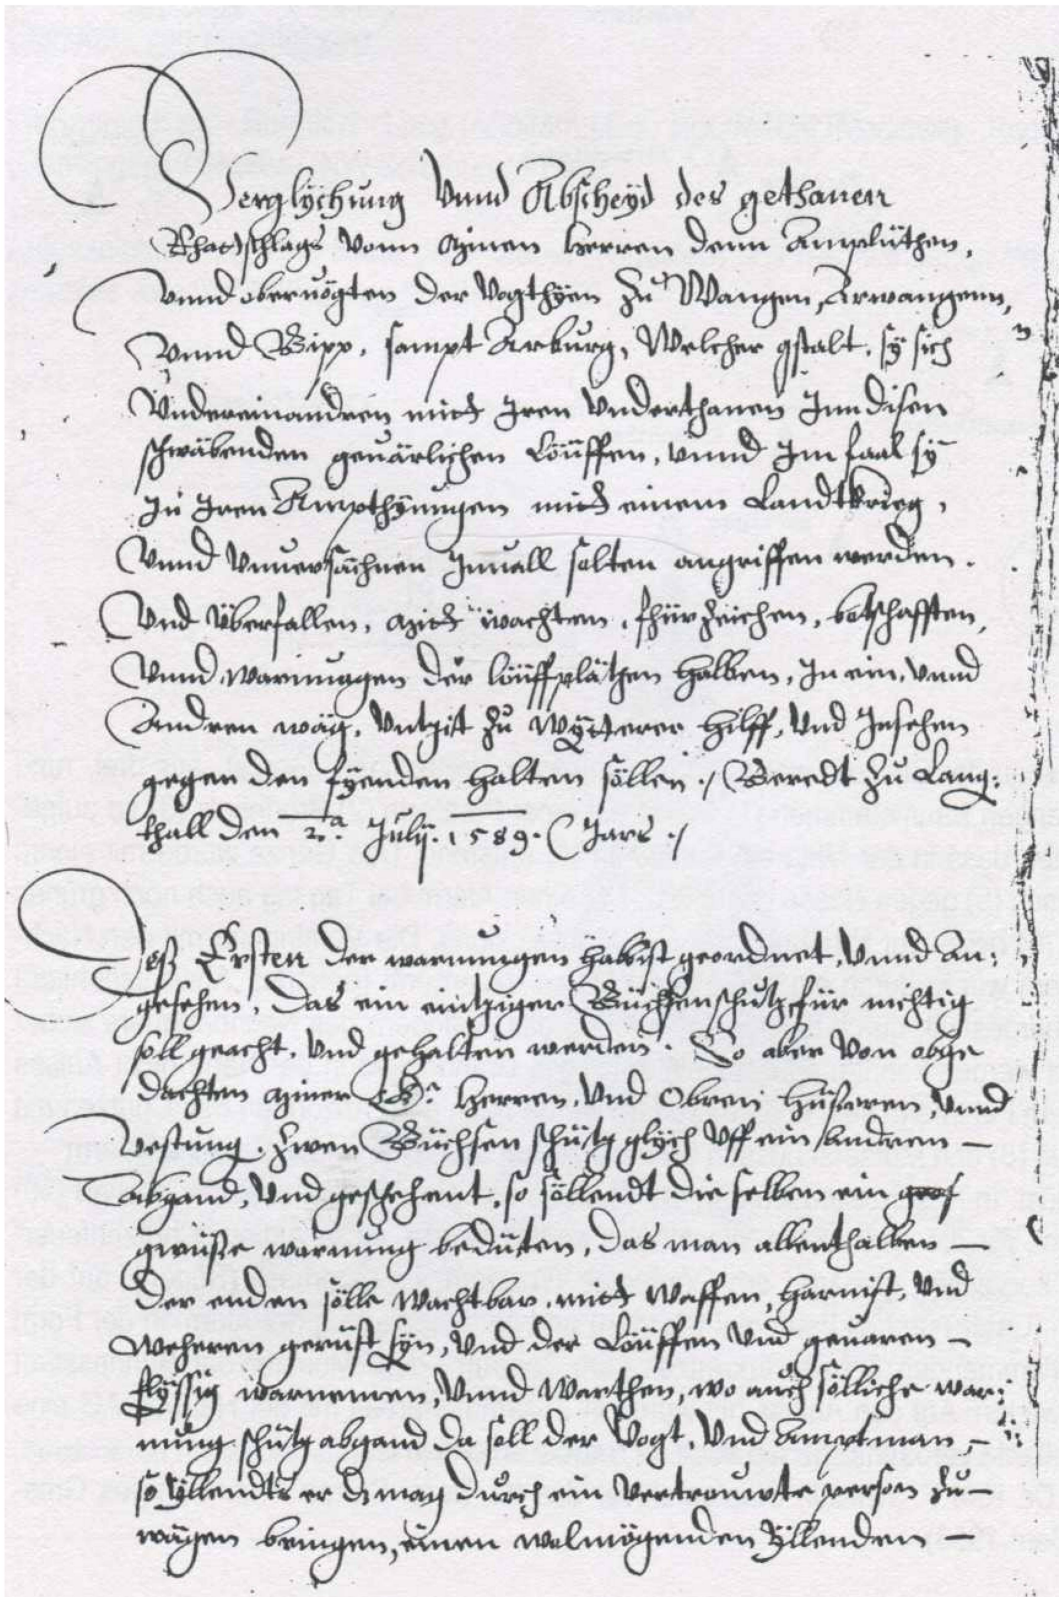 Verglÿchung Vnnd Abscheÿd des gethanen
Rhat)schlags vonn minen herren denn Amptlüthen,
vnnd obervögten der Vogthÿen zu Wangen, Arwangenn,
vnnd Bipp, sampt Arburg, Welcher gstalt, sÿ sich
Vndereinandren mitt Iren Vnderthanen Inn disen
schwäbenden geuärlichen Löüffen, vnnd Im faal sÿ
In Iren Ampthÿungen mitt einem Landtkrieg,
Vnnd Vnuersächnen Inuall solten angriffen werden.
Vnd Überfallen, mitt wachten, fhürzeichen, botschafften,
Vnnd warnungen der löüffplätzen halben, In ein, vnnd
Andren wäg, vntzit zu wÿtterer hilff, Vnd Insehen
gegen den fÿenden halten söllen ./ Beredt zu Lang:
thall den 2.a Julÿ. 1589. Jars ./
Deß Ersten der warnungen halb ist geordnet, vnnd An:
gesehen, Das ein eintziger Büchsenschutz für nichtig
soll geacht, vnd gehalten werden. So aber von obge
dachten miner G: herren, vnd Obren hüseren, vnnd
Vestung, Zwen Büchsen schütz glÿch vff ein Andren –
Abgand, Vnd geschehent, so söllendt die selben ein gros
gwüsse warnung bedüten, Das man allenthalben –
der enden sölle wachtbar, mitt waffen, harnist, vnd
weheren gerüst sÿn, vnd der Löüffen vnd geuaren –
flÿssig warnemen, Vnnd warthen, wo auch sölliche war:
nung schütz abgand Da soll der Vogt, Vnd Amptman, –
so ÿllendts er Im mag durch ein vertrouwte person zu –
wägen bringen, einen wolmögenden ÿllenden –